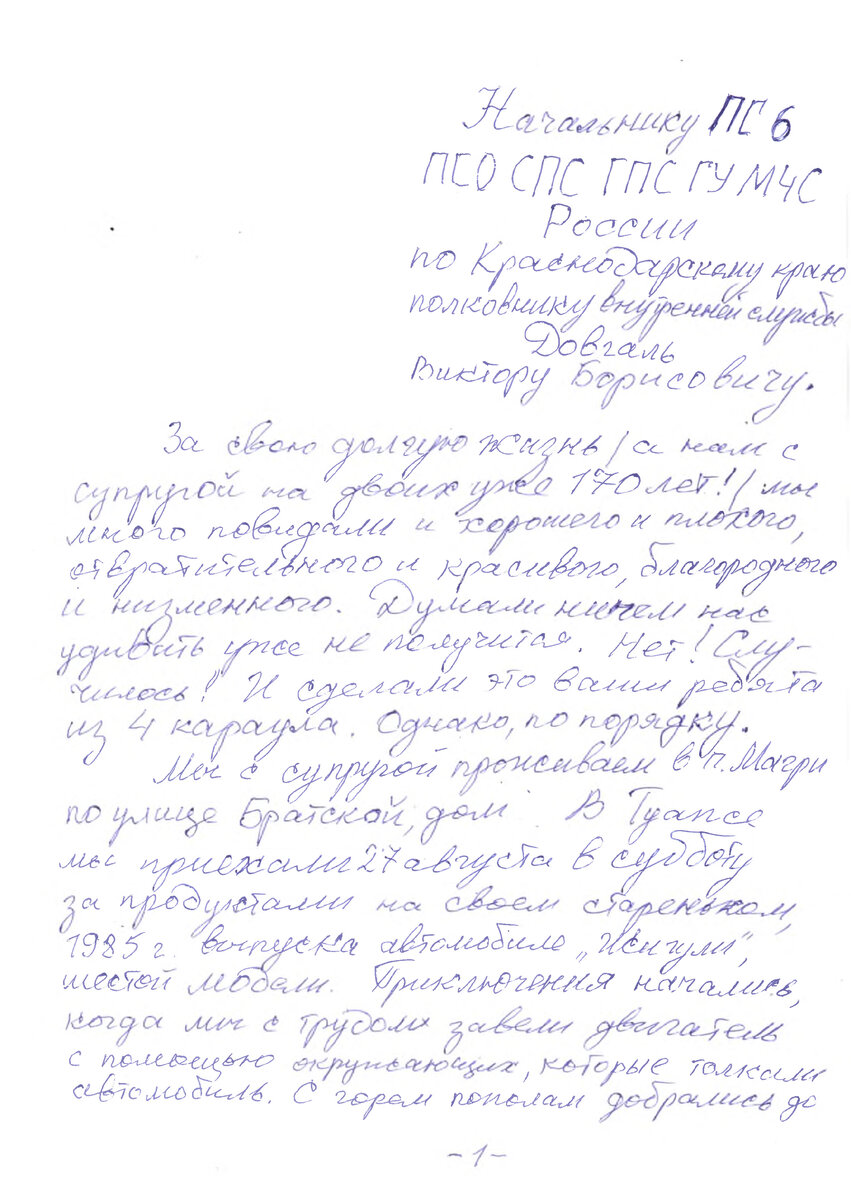 Начальнику ПС 6
ПСО СПС ГПС ГУ МЧС
России
по Краснодарскому краю
полковнику внутренней службы
Довгаль
Виктору Борисовичу.
За свою долгую жизнь /а нам с
супругой на двоих уже 170 лет!/ мы
много повидали и хорошего и плохого,
отвратительного и красивого, благородного
и низменного. Думали ничем нас
удивить уже не получится. Нет! Слу-
чилось! И сделали это ваши ребята
из 4 караула. Однако, по порядку.
Мы с супругой проживаем в п. Магри
по улице Братской, дом . В Туапсе
мы приехали 27 августа в субботу
за продуктами на своем стареньком,
1985 г. выпуска автомобиле „Жигули",
шестой модели. Приключения начались,
когда мы с трудом завели двигатель
с помощью окружающих, которые толкали
автомобиль. С горем пополам добрались до
-1-